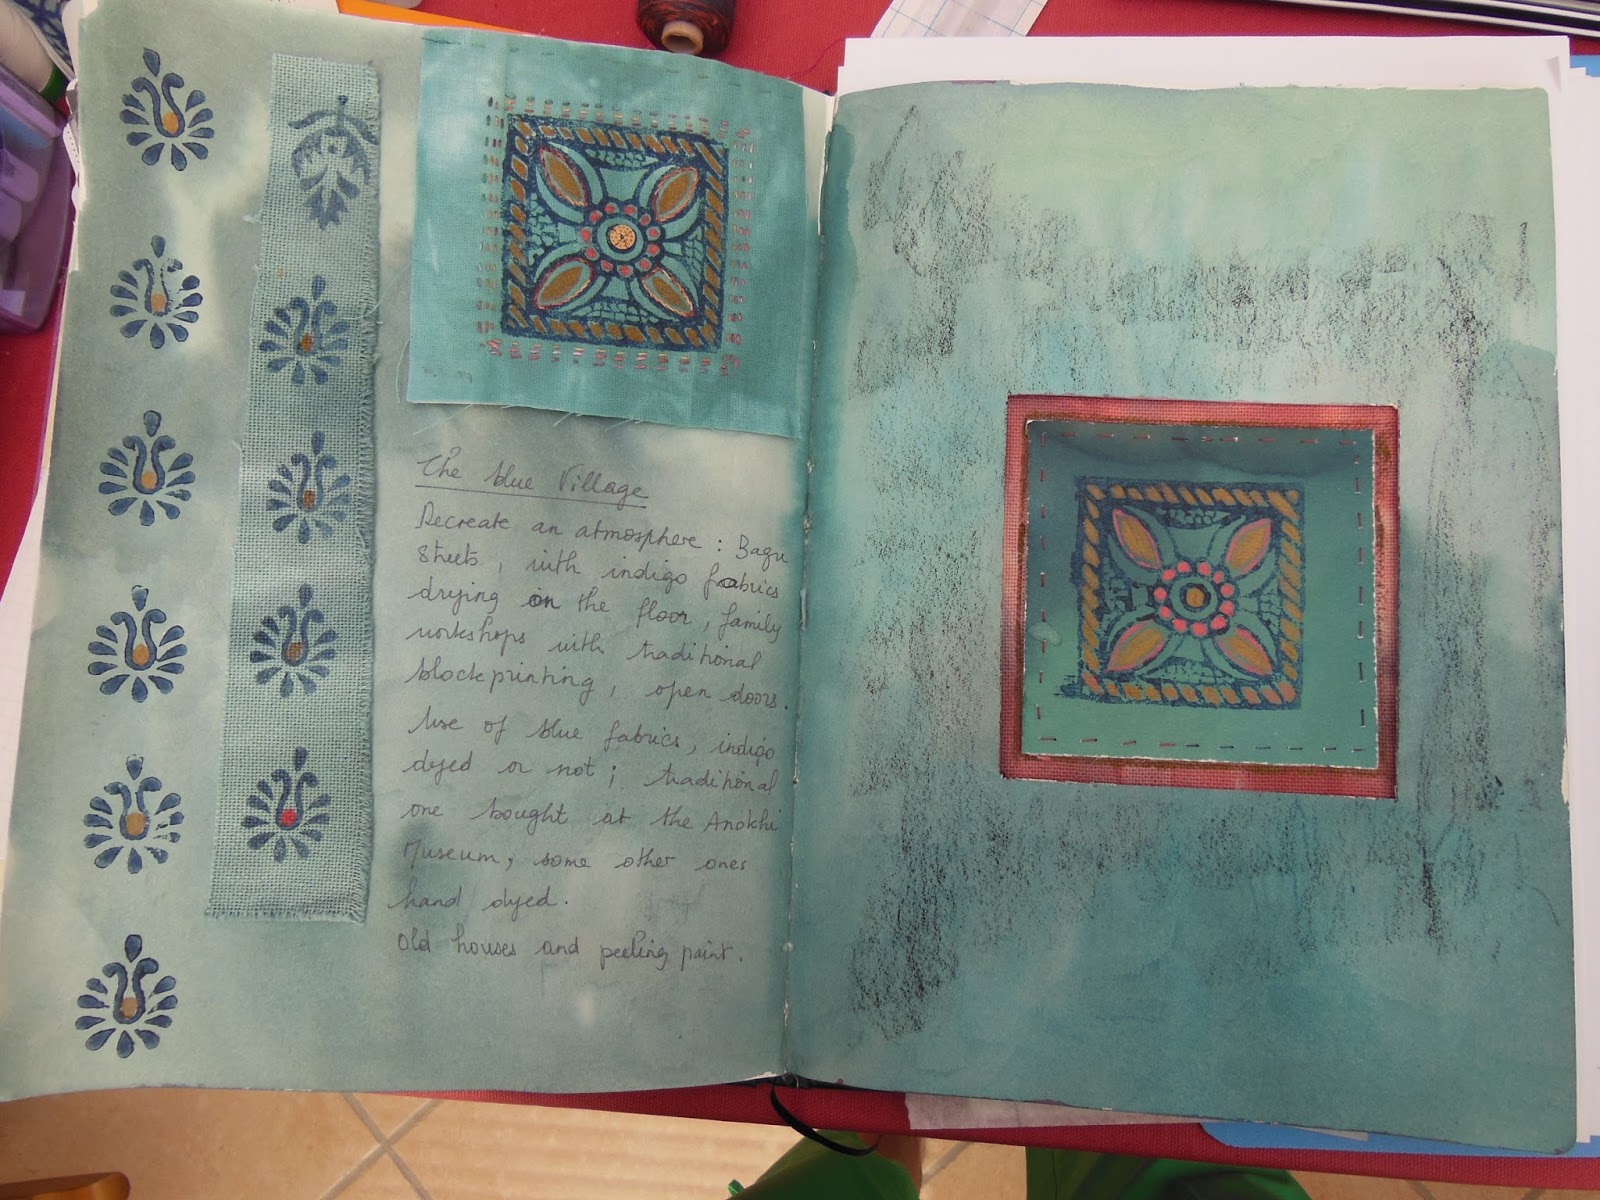 The blue Village
Recreate an atmosphere : Bagru
streets, with indigo fabrics
drying on the floor, family
workshops with traditional
blockprinting, open doors.
Use of blue fabrics, indigo
dyed or not ; traditional
one bought at the Anokhi
Museum, some other ones
hand dyed.
Old houses and peeling paint.